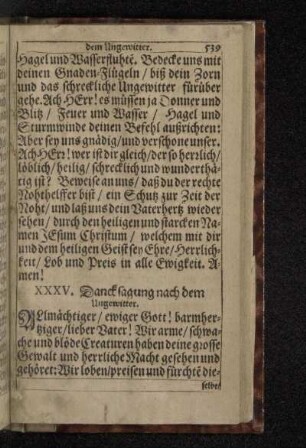 dem Ungewitter. 539
Hagel und Wasserfluhtē. Bedecke uns mit
deinen Gnaden-Flügeln / biß dein Zorn
und das schreckliche Ungewitter fürüber
gehe. Ach HErr! es müssen ja Donner und
Blitz / Feuer und Wasser / Hagel und
Sturmwinde deinen Befehl außrichten:
Aber sey uns gnädig / und verschone unser.
Ach HErr! wer ist dir gleich / der so herlich /
löblich / heilig / schrecklich und wunderthä-
tig ist? Beweise an uns / daß du der rechte
Nohthelffer bist / ein Schutz zur Zeit der
Noht / und laß uns dein Vaterhertz wieder
sehen / durch den heiligen und starcken Na-
men JEsum Christum / welchem mit dir
und dem heiligen Geist sey Ehre / Herrlich-
keit / Lob und Preis in alle Ewigkeit. A-
men!
XXXV. Dancksagung nach dem
Ungewitter.
ALlmächtiger / ewiger Gott! barmher-
tziger / lieber Vater! Wir arme / schwa-
che und blöde Creaturen haben deine grosse
Gewalt und herrliche Macht gesehen und
gehöret: Wir loben / preisen und fürchtē die-
selbe /